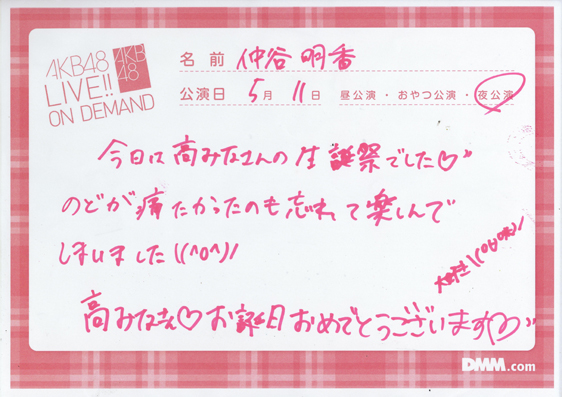 AKB48
LIVE!!
ON DEMAND
AKB
48
名前 仲谷 明香
公演日 5月 11日 昼公演・おやつ公演・夜公演
今日は高みなさんの生誕祭でした♡”
のどが痛たかったのも忘れて楽しんで
しまいました\(^o^)/
大好き
高みなさん♡お誕生日おめでとうございます
DMM.com